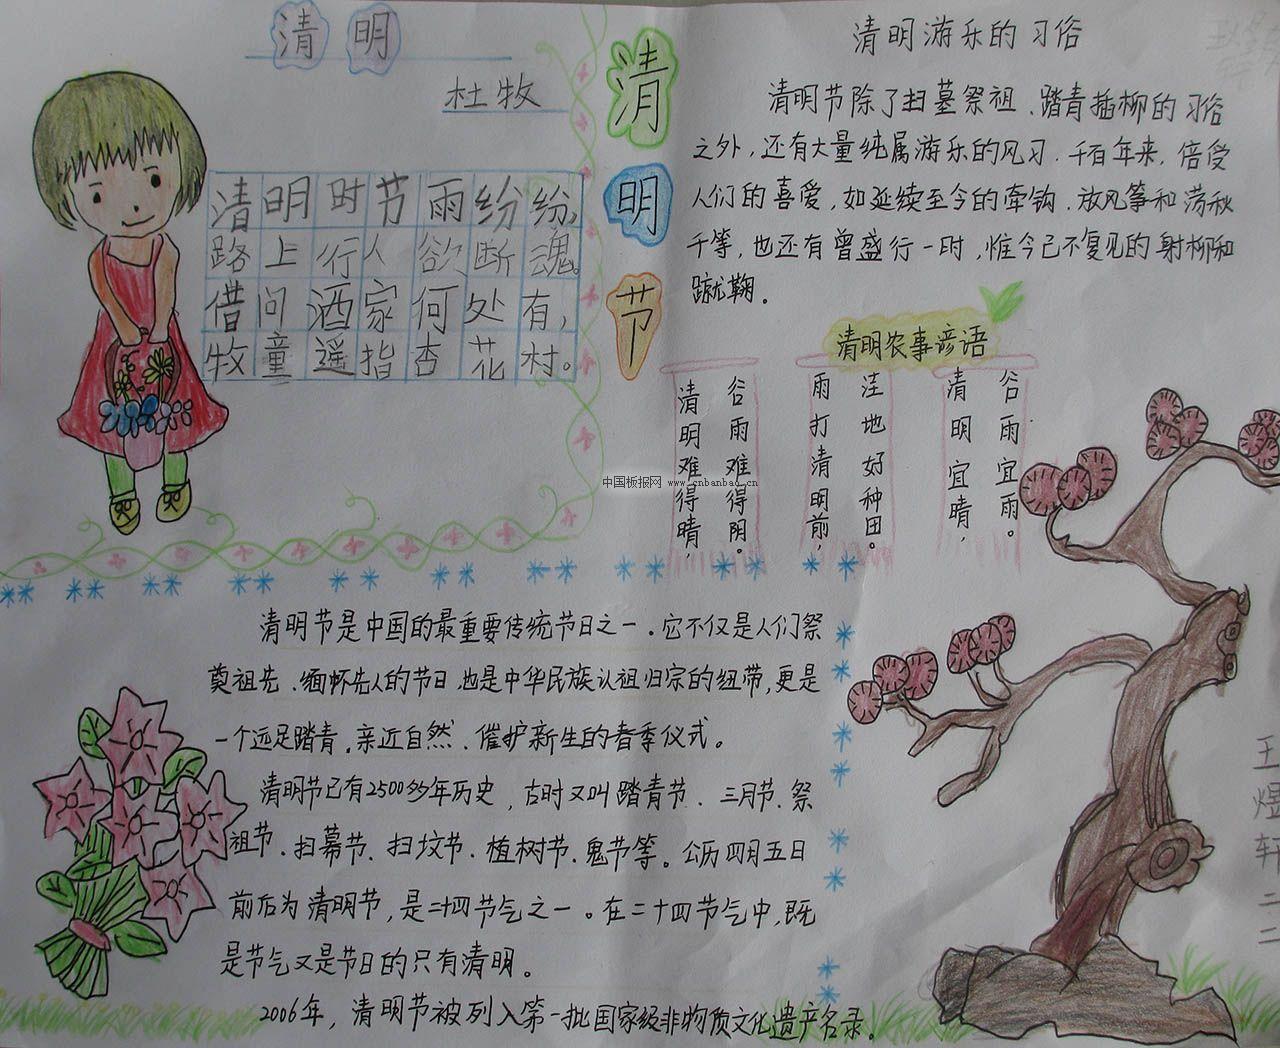 清明
杜牧
清明时节雨纷纷，
路上行人欲断魂。
借问酒家何处有，
牧童遥指杏花村。
清明节
清明游乐的习俗
清明节除了扫墓祭祖、踏青插柳的习俗
之外，还有大量纯属游乐的风习．千百年来，倍受
人们的喜爱，如延续至今的牵钩、放风筝和荡秋
千等，也还有曾盛行一时，惟今已不复见的射柳和
蹴鞠。
清明农事谚语
清明难得晴，
谷雨难得阴。
雨打清明前，
洼地好种田。
清明宜晴，
谷雨宜雨。
中国板报网 www.cnbanbao.cn
清明节是中国的最重要传统节日之一．它不仅是人们祭
奠祖先、缅怀先人的节日，也是中华民族认祖归宗的纽带，更是
一个远足踏青，亲近自然、催护新生的春季仪式。
清明节已有2500多年历史，古时又叫踏青节、三月节、祭
祖节、扫幕节、扫坟节、植树节、鬼节等。公历四月五日
前后为清明节，是二十四节气之一。在二十四节气中，既
是节气又是节日的只有清明。
2006年，清明节被列入第一批国家级非物质文化遗产名录。
王煜轩二二